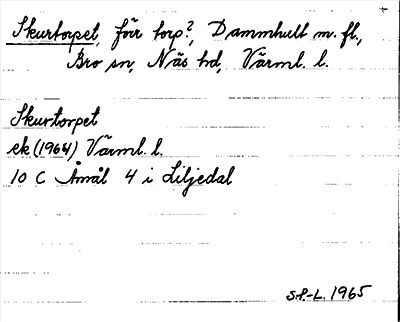 Skurtorpet, förr torp?, Dammhult m. fl.,
Bro sn, Näs hd, Värml. l.
Skurtorpet
ek (1964) Värml. l.
10 C Åmål 4 i Liljedal
S.P.-L. 1965